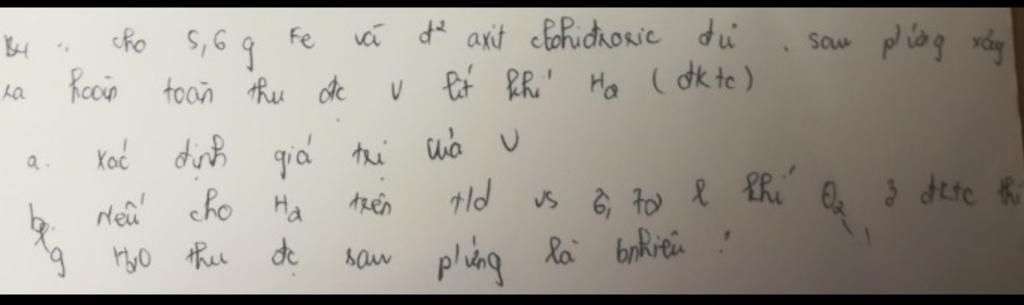 B4 : cho 5,6 g Fe và d² axit clohidroxic đủ . sau p/ứng xảy
ra hoàn toàn thu đc V lít khí H₂ (đktc)
a. xác định giá trị của V
b. Nếu cho H₂ trên t/d vs 6,72 l khí O₂ ở đktc thì
g H₂O thu đc sau p/ứng là bnhiêu ?